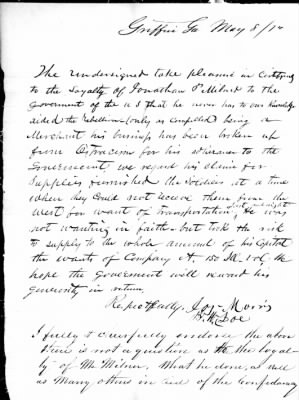 Griffin Ga May 8/72
The undersigned take pleasure in certifying
to the Loyalty of Jonathan Milner to the
Government of the U S that he never has to our knowledge
aided the Rebellion (only as compelled) being a
Merchant his business has been broken up
from Ostracism for his adherence to the
Government we regard his claim for
Supplies furnished the Soldiers at a time
when they could not receive them from the
west for want of transportation, He was
not wanting in faith but took the risk
to supply to the whole amount of his Capitol
the wants of Company A, 150 We
hope the Government will reward his
generosity in return,
Respectfully, Morris
I fully & cheerfully endorse the above
there is not a question as to the loyal-
ty of Mr Milner. What he done, as well
as Many others in aid of the Confederacy